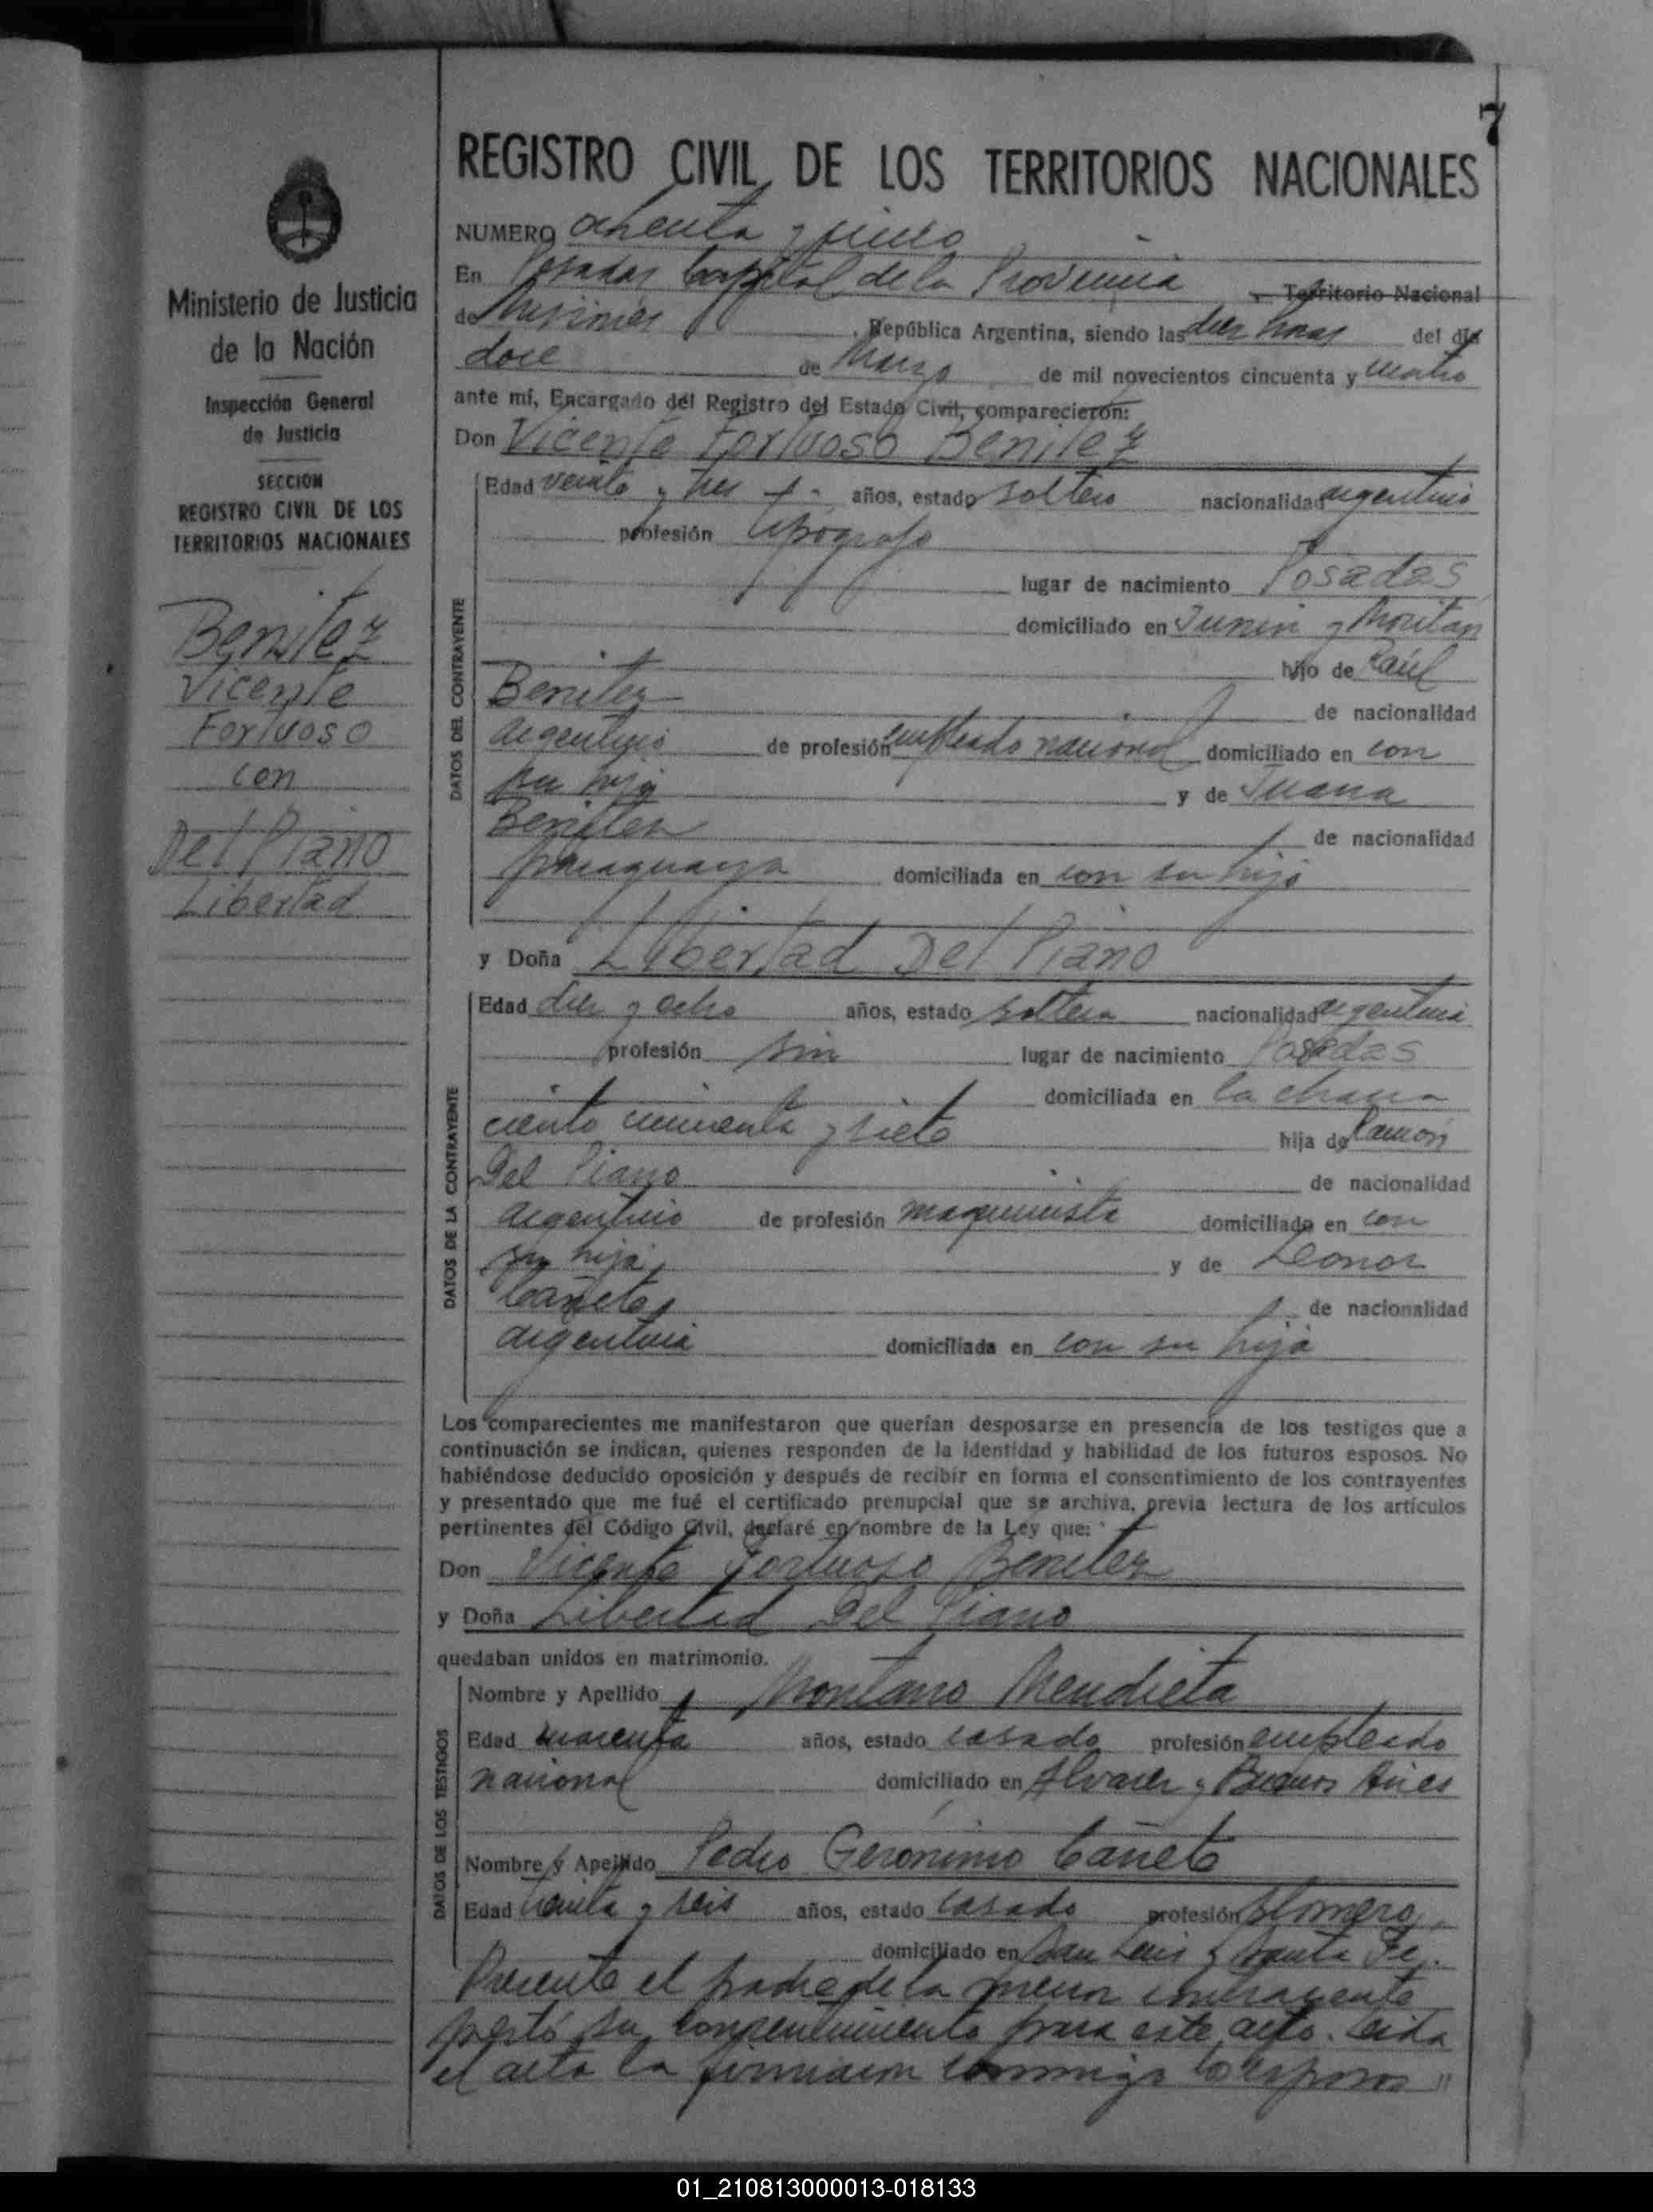 7
Ministerio de Justicia
de la Nación
Inspección General
de Justicia
SECCION
REGISTRO CIVIL DE LOS
TERRITORIOS NACIONALES
Benitez
Vicente
Fortuoso
con
Del Piano
Libertad
REGISTRO CIVIL DE LOS TERRITORIOS NACIONALES
NUMERO ochenta y cinco
En Posadas Capital de la Provincia Territorio Nacional
de Misiones República Argentina, siendo las diez horas del día
doce de Marzo de mil novecientos cincuenta y cuatro
ante mí, Encargado del Registro del Estado Civil, comparecieron:
Don Vicente Fortuoso Benitez
DATOS DEL CONTRAYENTE
Edad veinte y tres años, estado soltero nacionalidad argentino
profesión tipógrafo
lugar de nacimiento Posadas
domiciliado en Junin y
hijo de Raúl
Benitez de nacionalidad
argentino de profesión empleado nacional domiciliado en con
su hijo y de Juana
Benitez de nacionalidad
paraguaya domiciliada en con su hijo
y Doña Libertad Del Piano
DATOS DE LA CONTRAYENTE
Edad diez y ocho años, estado soltera nacionalidad argentina
profesión sin lugar de nacimiento Posadas
domiciliada en la chacra
ciento cincuenta y siete hija de Ramón
Del Piano de nacionalidad
argentino de profesión maquinista domiciliado en con
su hija y de Leonor
Cañete de nacionalidad
argentina domiciliada en con su hija
Los comparecientes me manifestaron que querían desposarse en presencia de los testigos que a
continuación se indican, quienes responden de la identidad y habilidad de los futuros esposos. No
habiéndose deducido oposición y después de recibir en forma el consentimiento de los contrayentes
y presentado que me fué el certificado prenupcial que se archiva, previa lectura de los artículos
pertinentes del Código Civil, declaré en nombre de la Ley que:
Don Vicente Fortuoso Benitez
y Doña Libertad Del Piano
quedaban unidos en matrimonio.
DATOS DE LOS TESTIGOS
Nombre y Apellido Montano Mendieta
Edad cuarenta años, estado casado profesión empleado
nacional domiciliado en Alvarez y Buenos Aires
Nombre y Apellido Pedro Geronimo Cañete
Edad treinta y seis años, estado casado profesión plomero,
domiciliado en San Luis y Santa Fe.
Presente el padre de la menor contrayente
prestó su consentimiento para este acto. Leida
el acta la firmaron conmigo los esposos
01_210813000013-018133